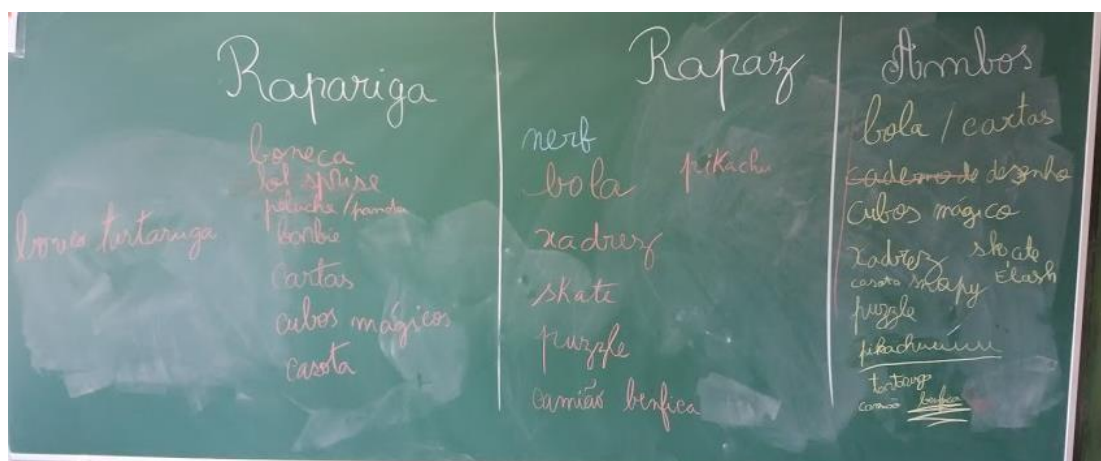 Rapariga
boneca
lol sprise
peluche / panda
boneco tartaruga
barbie
cartas
cubos mágicos
casota
Rapaz
nerf
bola pikachu
xadrez
skate
puzzle
camião benfica
Ambos
bola / cartas
caderno de dezenho
cubos mágico
xadrez skate
casota snapy Élash
puzzle
pikachuuuuu
tartaruga
camião benfica